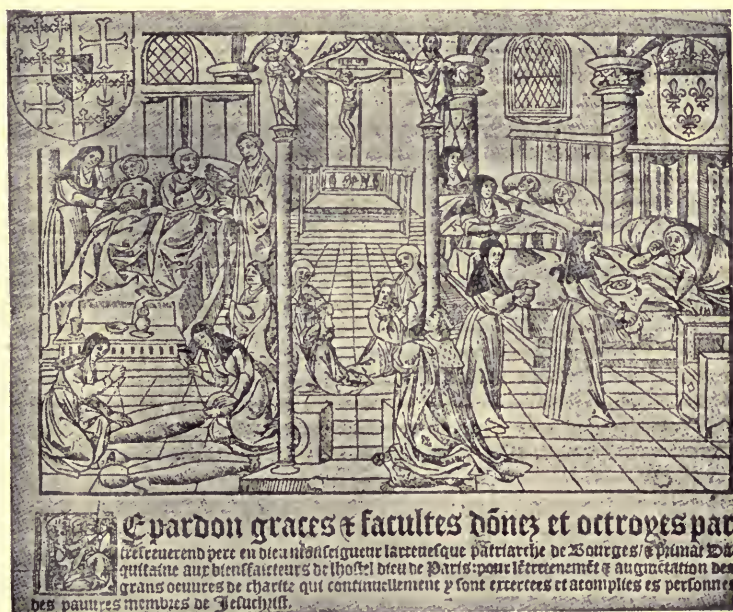 Le pardon graces ⁊ facultes dõnez et octroyes par
tresreuerend pere en dieu monseigneur larceuesque patriarche de Bourges/⁊ primat Da
quitaine aux bienffaicteurs de lhostel dieu de Paris: pour lẽtretenemẽt ⁊ augmẽtation des
grans oeuures de charite qui continuellement y sont exercees et acomplies es personnes
des pauures membres de Jesuchrist.